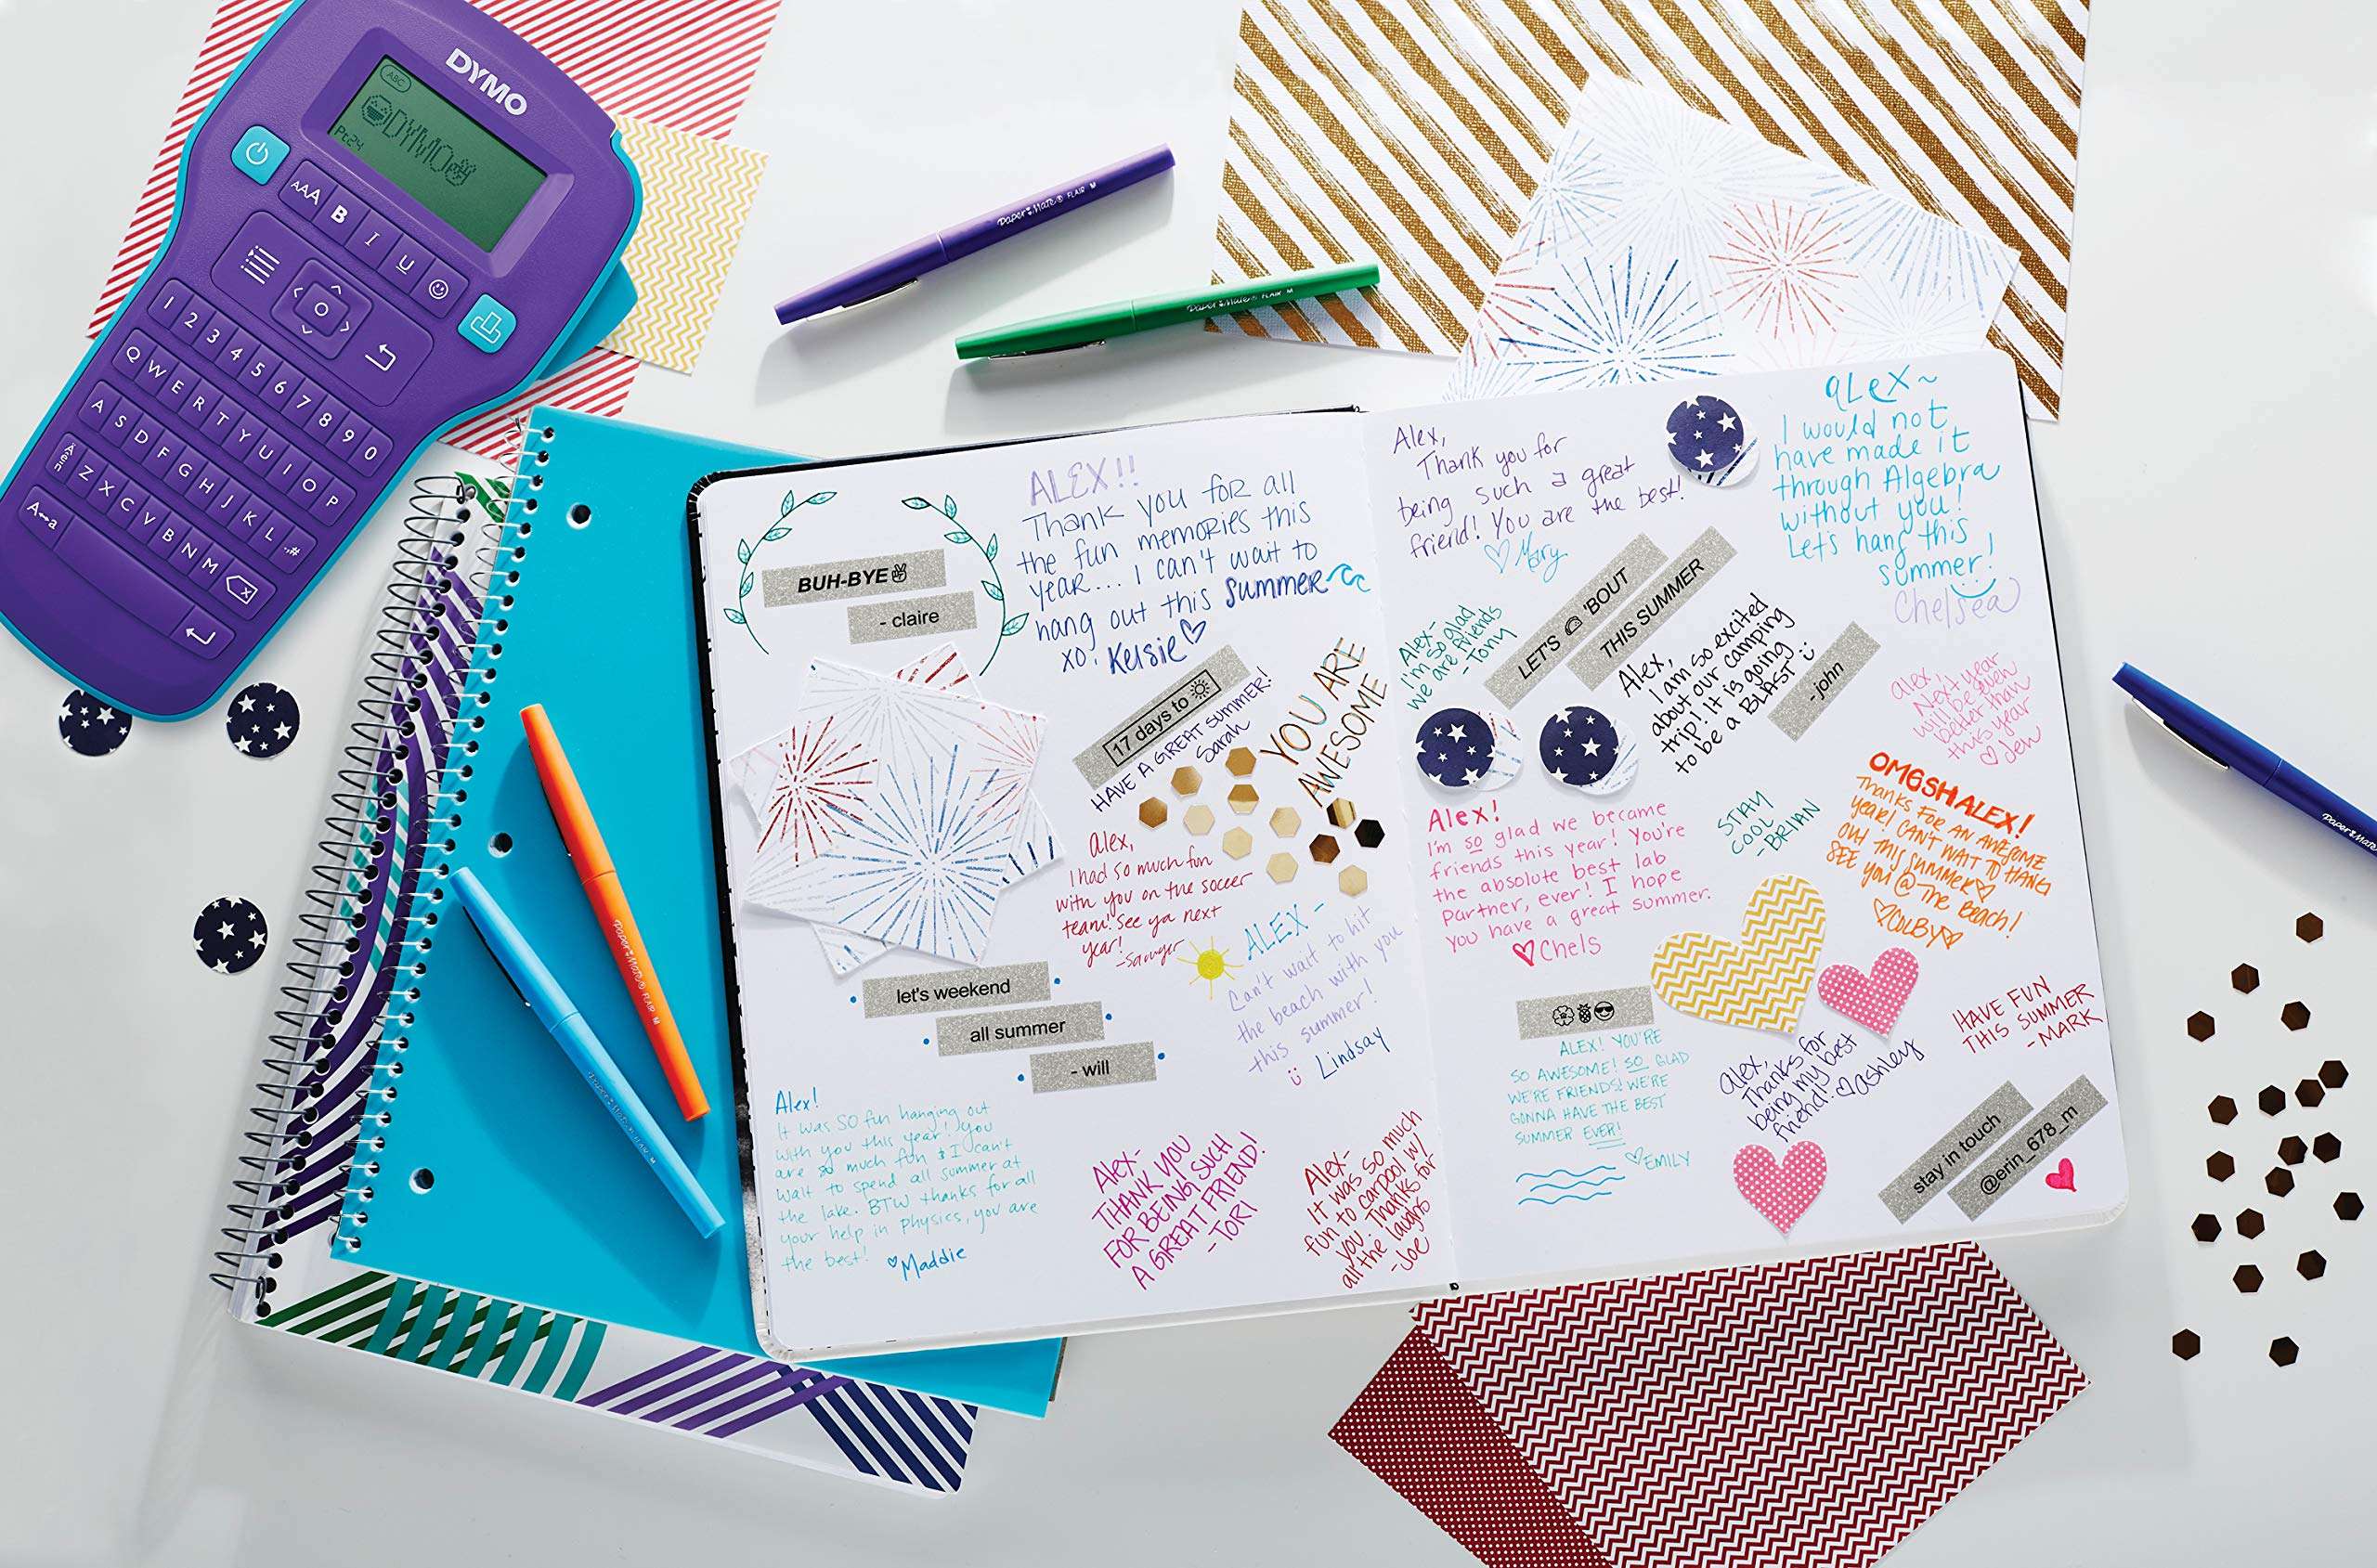 DYMO
ABC
DYMO
Pt.24
AAA B I U
1 2 3 4 5 6 7 8 9 0
Q W E R T Y U I O P
A S D F G H J K L .,#
Z X C V B N M
A↔a
Paper:Mate® FLAIR M
Paper:Mate® FLAIR M
Paper:Mate® FLAIR M
Paper:Mate® FLAIR M
Paper:Mate
BUH-BYE✌
- claire
ALEX!!
Thank you for all
the fun memories this
year.... I can't wait to
hang out this summer
xo, Kelsie♡
17 days to ☀
HAVE A GREAT SUMMER!
Sarah
YOU ARE
AWESOME
Alex,
I had so much fun
with you on the soccer
team! See ya next
year!
let's weekend
all summer
- will
ALEX-
Can't wait to hit
the beach with you
this summer!
Lindsay
Alex!
It was SO fun hanging out
with you this year! You
are so much fun & I can't
wait to spend all summer at
the lake. BTW thanks for all
your help in physics, you are
the best! ♡Maddie
Alex-
THANK YOU
FOR BEING SUCH
A GREAT FRIEND!
-TORI
Alex-
It was so much
fun to carpool w/
you. Thanks for
all the laughs
-Joe
Alex,
Thank you for
being such a great
friend! You are the best!
♡ Mary
aLeX~
I would not
have made it
through Algebra
without you!
Let's hang this
summer!
Chelsea
Alex-
I'm so glad
we are friends
-Tony
LET'S 'BOUT
THIS SUMMER
Alex,
I am so excited
about our camping
trip! It is going
to be a BLAST
-john
alex,
Next year
will be even
better than
this year
♡ Jen
Alex!
I'm so glad we became
friends this year! You're
the absolute best lab
partner, ever! I hope
you have a great summer.
♡Chels
STAY
COOL
-BRIAN
OMGSH ALEX!
THANKS FOR AN AWESOME
YEAR! CAN'T WAIT TO HANG
OUT THIS SUMMER♡
SEE YOU @ THE BEACH!
♡COLBY♡
ALEX! YOU'RE
SO AWESOME! SO GLAD
WE'RE FRIENDS! WE'RE
GONNA HAVE THE BEST
SUMMER EVER!
♡EMILY
alex,
Thanks for
being my best
friend! ♡ashley
HAVE FUN
THIS SUMMER
-MARK
stay in touch
@erin_678_m